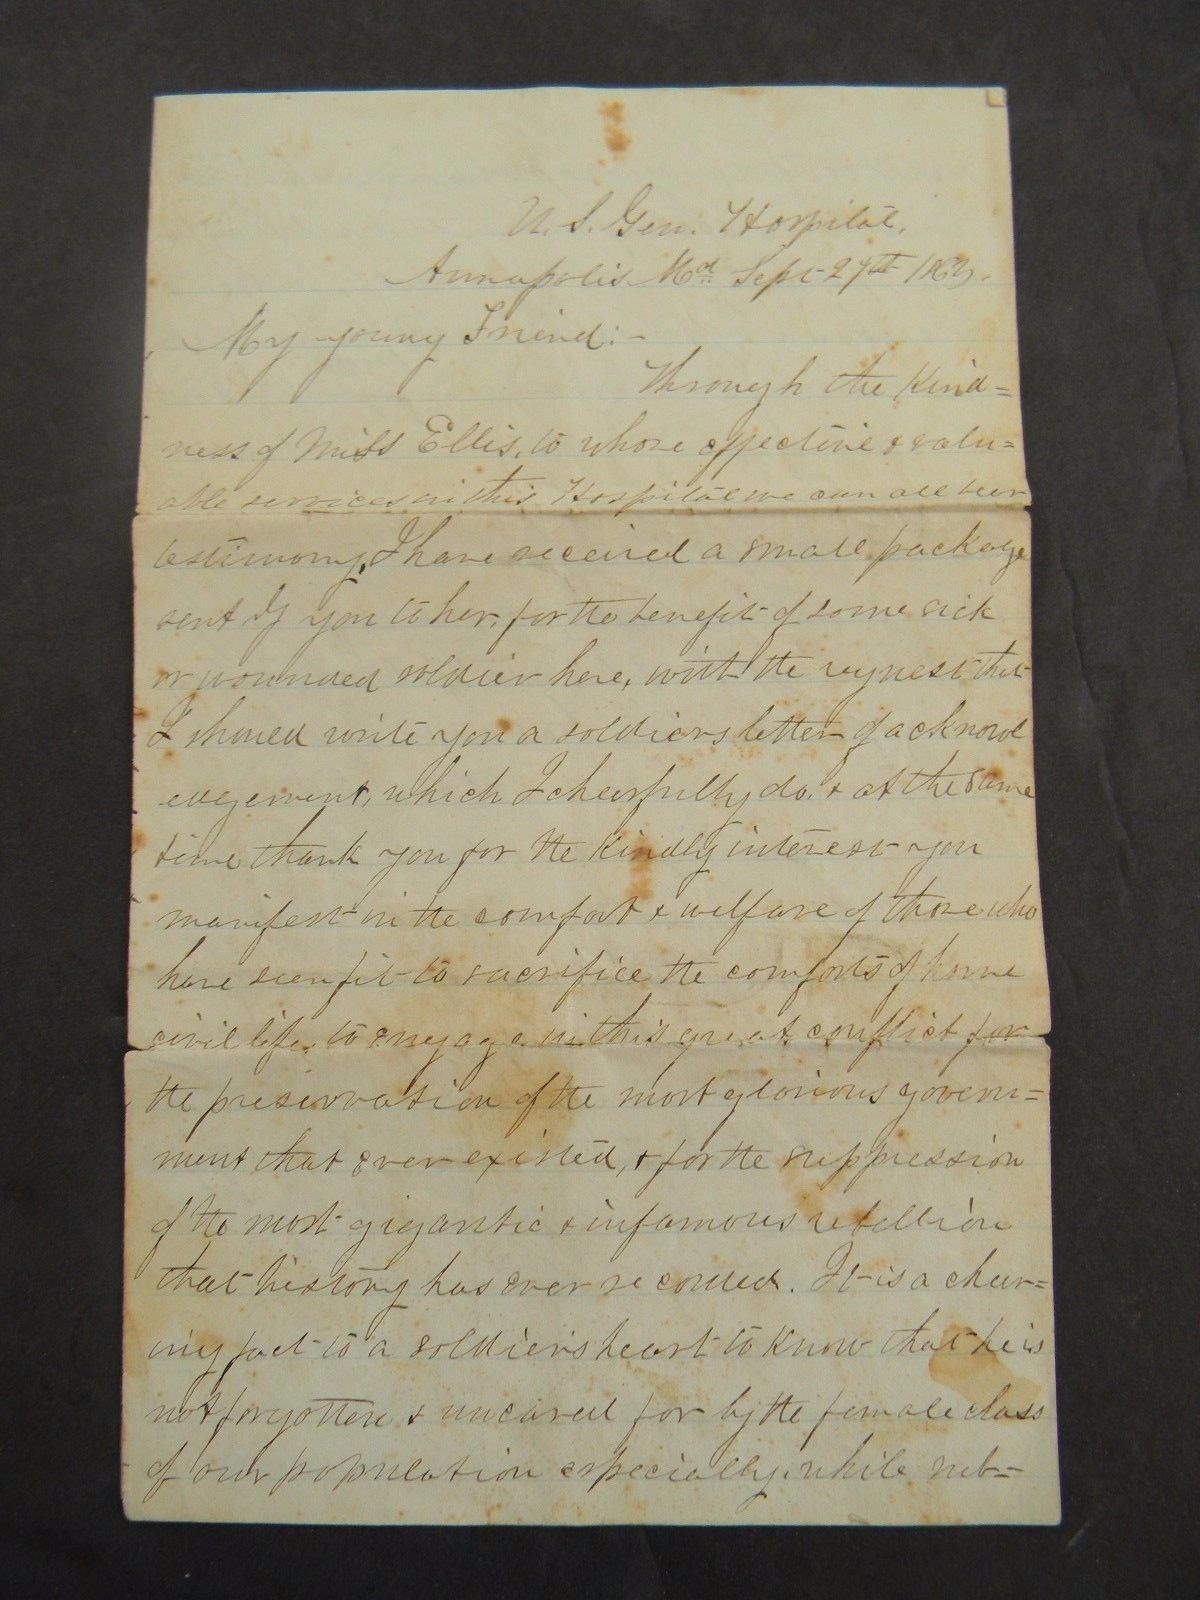 U. S. Gen. Hospital,
Annapolis Md Sept 29th 1863.
My young Friend:-
Through the Kind=
ness of Miss Ellis, to whose effective & valu=
able services in this Hospital we can all bear
testimony, I have received a small package
sent by you to her, for the benefit of some sick
or wounded soldier here, with the request that
I should write you a soldiers letter of acknowl
edgement, which I cheerfully do, & at the same
time thank you for the kindly interest you
manifest in the comfort & welfare of those who
have seen fit to sacrifice the comforts of home
civil life, to engage in this great conflict for
the preservation of the most glorious govern=
ment that ever existed, & for the suppression
of the most gigantic & infamous rebellion
that history has ever recorded. It is a cheer=
ing fact to a soldier's heart to know that he is
not forgotten & uncared for by the female class
of our population especially, while reb=